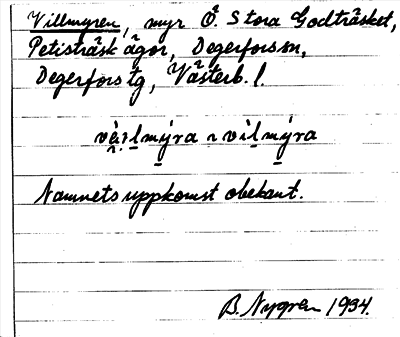 Villmyren, myr Ö. Stora Godträsket,
Petisträsk ägor, Degerfors sn,
Degerfors tg, Västerb. l.
vílmýra
Namnets uppkomst obekant.
B. Nygren 1934.